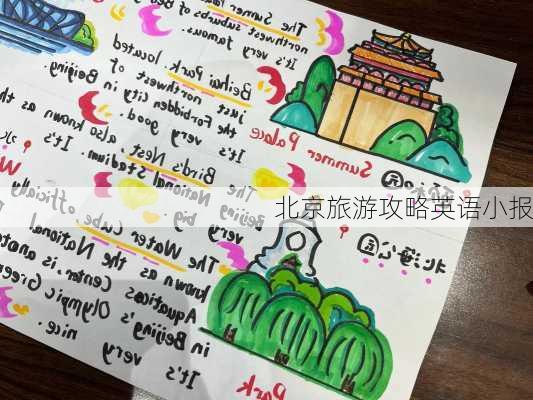 The Summer
northwest suburbs of Be
It's very famous.
Beihai Park, located
just northwest of
the Forbidden City in
Beijing.
It's very good.
The Bird's Nest,
also known as th
National Stadium.
It's
very big
The Water Cube,
officially
known as the National
Aquatics Center, is anot
in Beijing's Olympic Green
It's very nice.
Summer Palace
园
北海公园
Park
北京旅游攻略英语小报